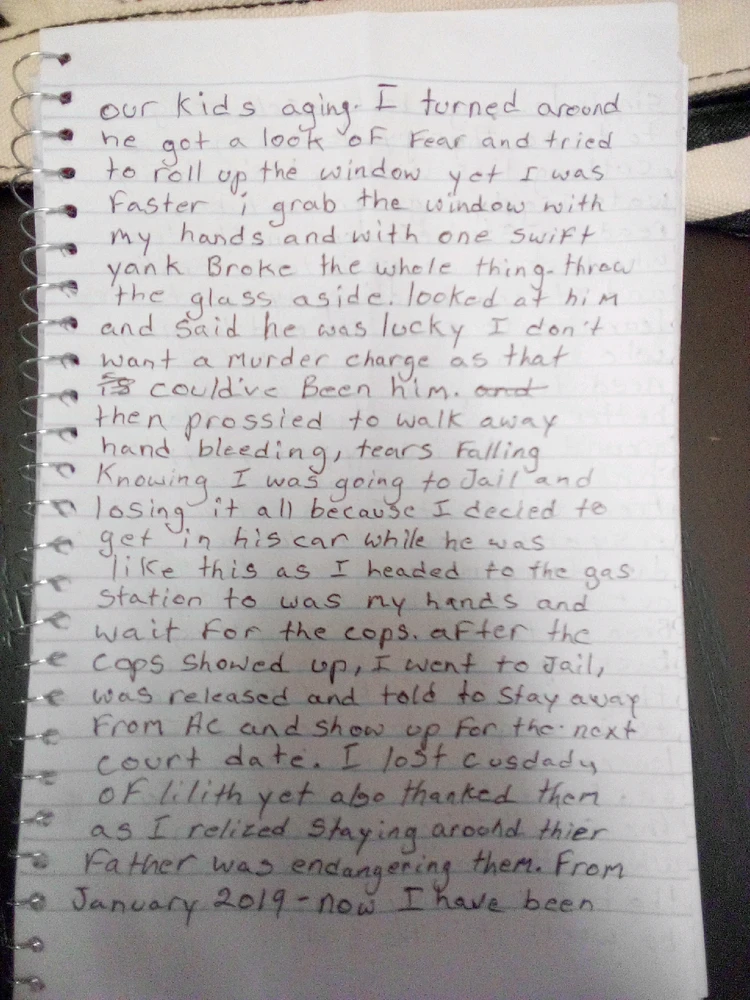 our kids aging. I turned around
he got a look of fear and tried
to roll up the window yet I was
faster i grab the window with
my hands and with one swift
yank Broke the whole thing. throw
the glass aside. looked at him
and said he was lucky I don't
want a murder charge as that
is could've Been him. and
then prossied to walk away
hand bleeding, tears falling
Knowing I was going to Jail and
losing it all because I decied to
get in his car while he was
like this as I headed to the gas
station to was my hands and
wait for the cops. after the
cops showed up, I went to Jail,
was released and told to stay away
From AC and show up for the next
court date. I lost cusdady
of lilith yet also thanked them
as I relized staying around thier
Father was endangering them. From
January 2019 - now I have been